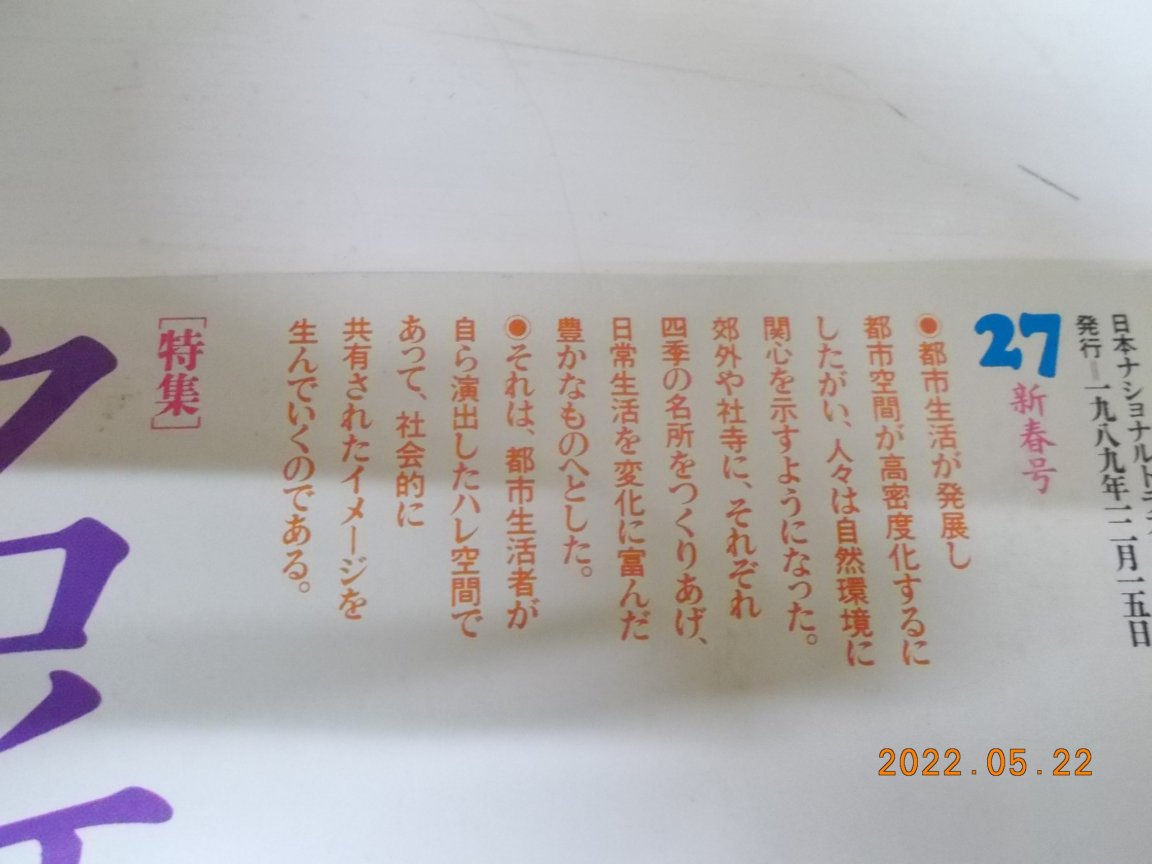 日本ナショナルトラス
発行＝一九八九年一二月一五日
27
新春号
◉都市生活が発展し
都市空間が高密度化するに
したがい、人々は自然環境に
関心を示すようになった。
郊外や社寺に、それぞれ
四季の名所をつくりあげ、
日常生活を変化に富んだ
豊かなものへとした。
◉それは、都市生活者が
自ら演出したハレ空間で
あって、社会的に
共有されたイメージを
生んでいくのである。
[特集]
2022.05.22